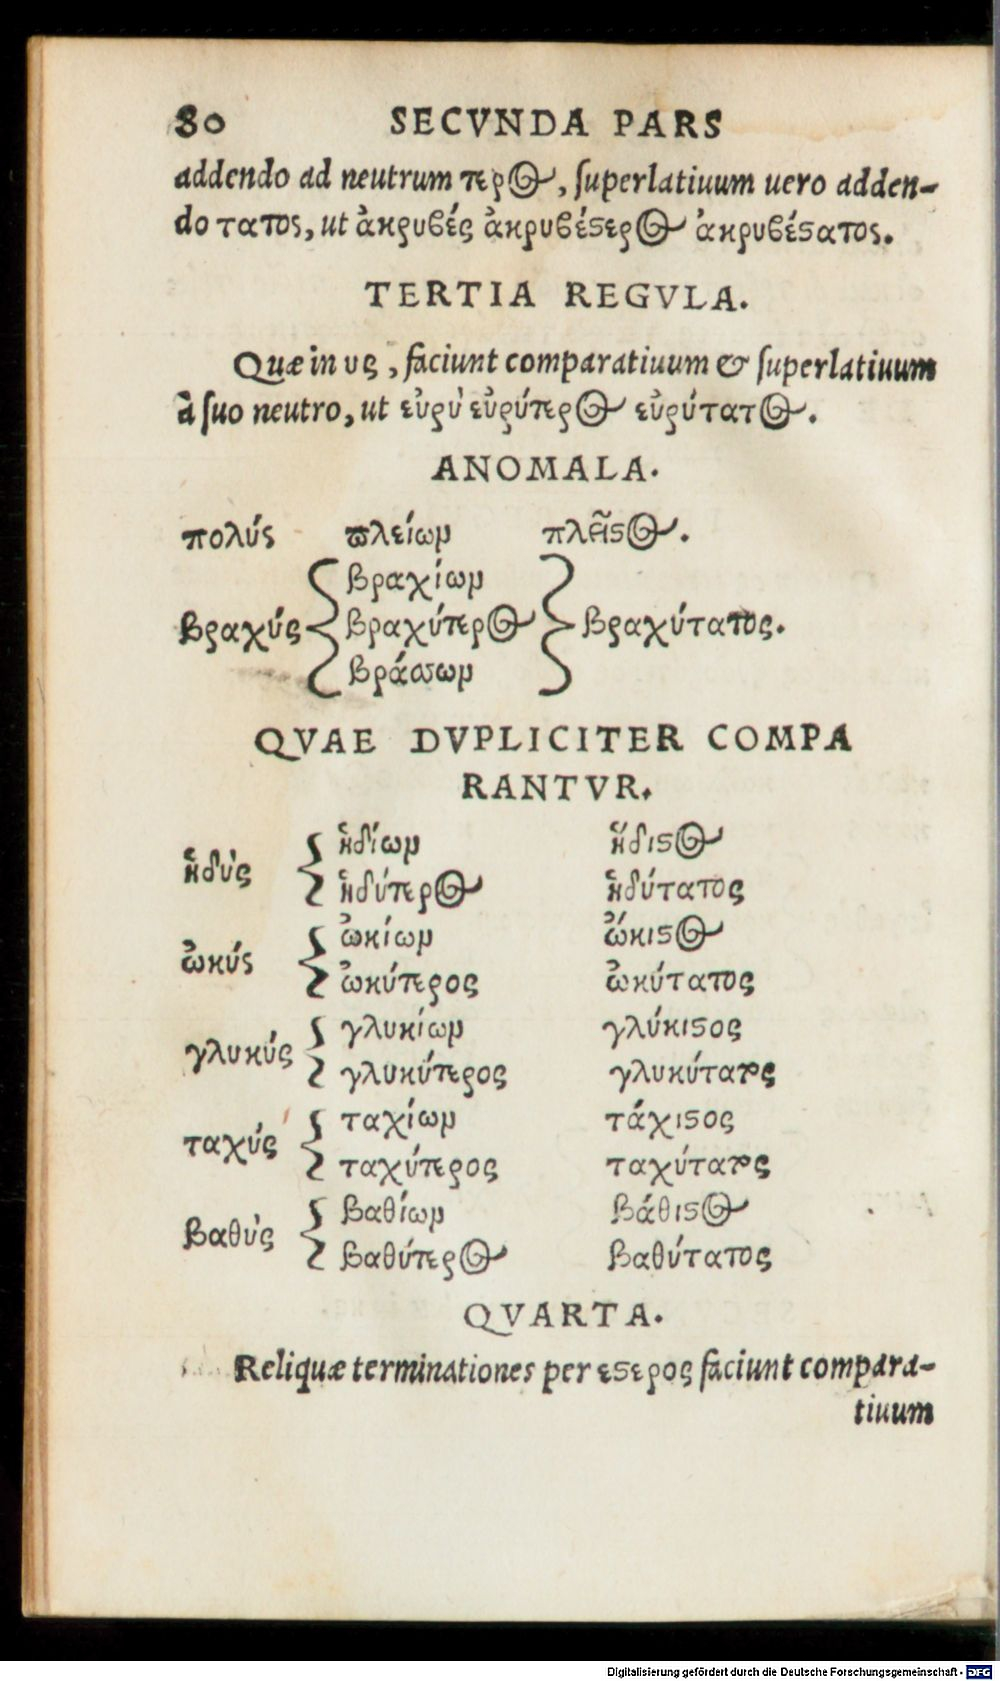 80 SECVNDA PARS
addendo ad neutrum τερος, superlatiuum uero adden-
do τατος, ut ἀκρυβές ἀκρυβέστερος ἀκρυβέστατος.
TERTIA REGVLA.
Quæ in υς, faciunt comparatiuum & superlatiuum
à suo neutro, ut εὐρύ εὐρύτερος εὐρύτατος.
ANOMALA.
πολύς πλείων πλεῖστος.
βραχίων
βραχύς βραχύτερος βραχύτατος.
βράσσων
QVAE DVPLICITER COMPA
RANTVR.
ἡδὺς ἡδίων ἥδιστος
ἡδύτερος ἡδύτατος
ὠκύς ὠκίων ὤκιστος
ὠκύτερος ὠκύτατος
γλυκύς γλυκίων γλύκιστος
γλυκύτερος γλυκύτατος
ταχύς ταχίων τάχιστος
ταχύτερος ταχύτατος
βαθὺς βαθίων βάθιστος
βαθύτερος βαθύτατος
QVARTA.
Reliquæ terminationes per εστερος faciunt compara-
tiuum
Digitalisierung gefördert durch die Deutsche Forschungsgemeinschaft - DFG